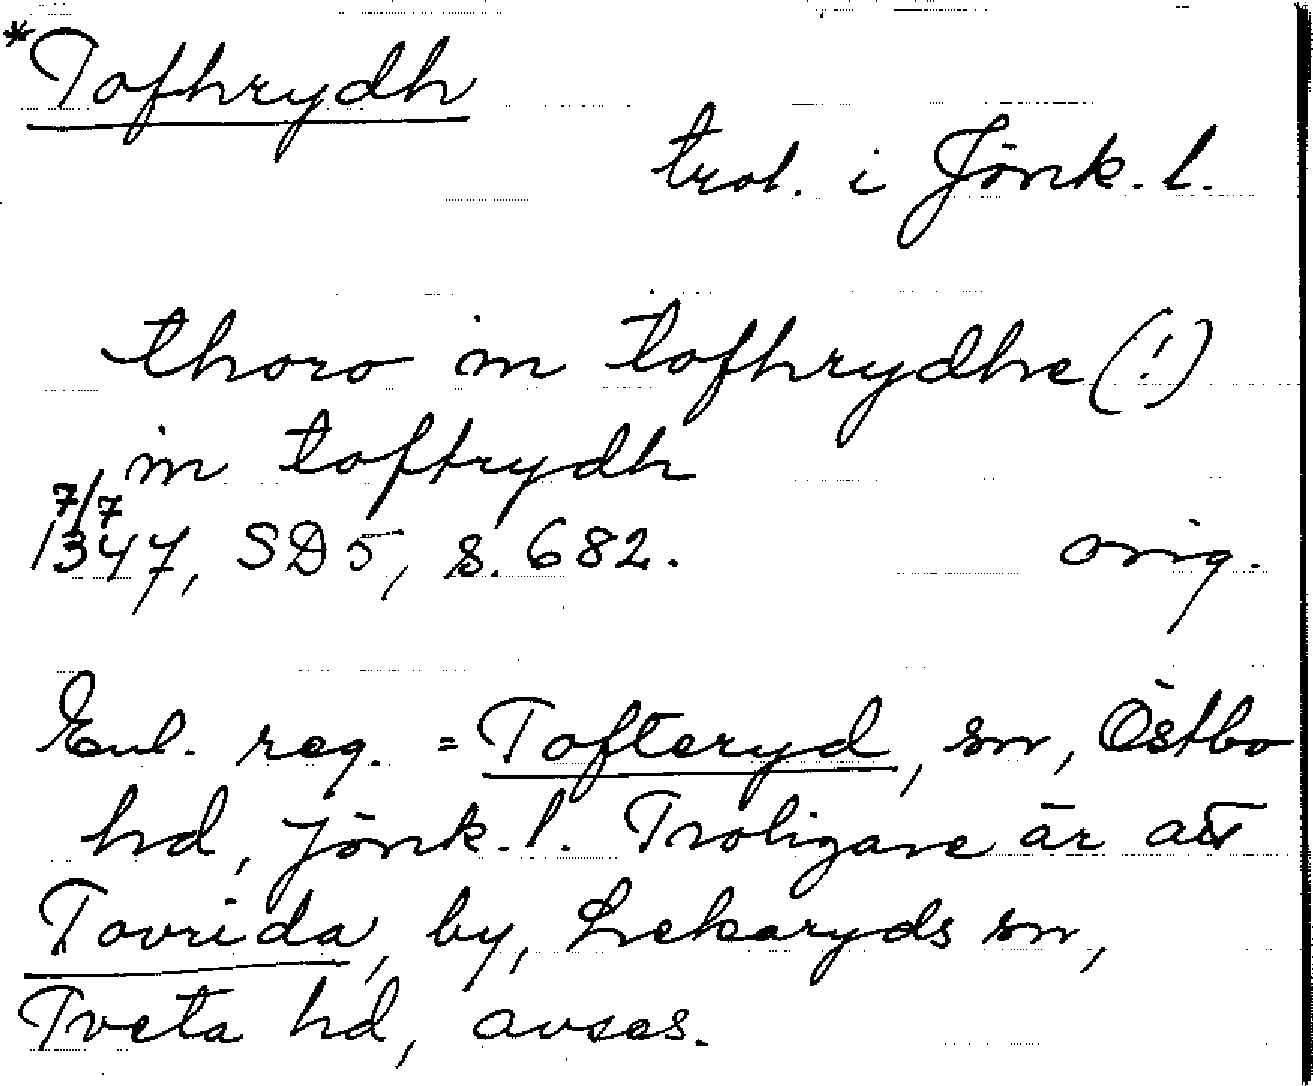 *Tofhrydh
trol. i Jönk. l.
thoro in tofhrydhe (!)
in toftrydh
7/7
1347, SD 5, s. 682.   orig.
Enl. reg. = Tofteryd, sn, Östbo
hd, Jönk. l. Troligare är att
Tovrida, by, Lekaryds sn,
Tveta hd, avses.